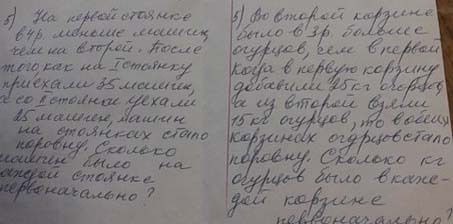 5) На первой стоянке
в 4 р. меньше машин,
чем на второй. После
того как на I стоянку
приехали 35 машин,
а со II стоянки уехали
25 машин, машин
на стоянках стало
поровну. Сколько
машин было на
каждой стоянке
первоначально?
5) Во второй корзине
было в 3 р. больше
огурцов, чем в первой
Когда в первую корзину
добавили 25 кг огурцов,
а из второй взяли
15 кг огурцов, то в обеих
корзинах огурцов стало
поровну. Сколько кг
огурцов было в каж-
дой корзине
первоначально?